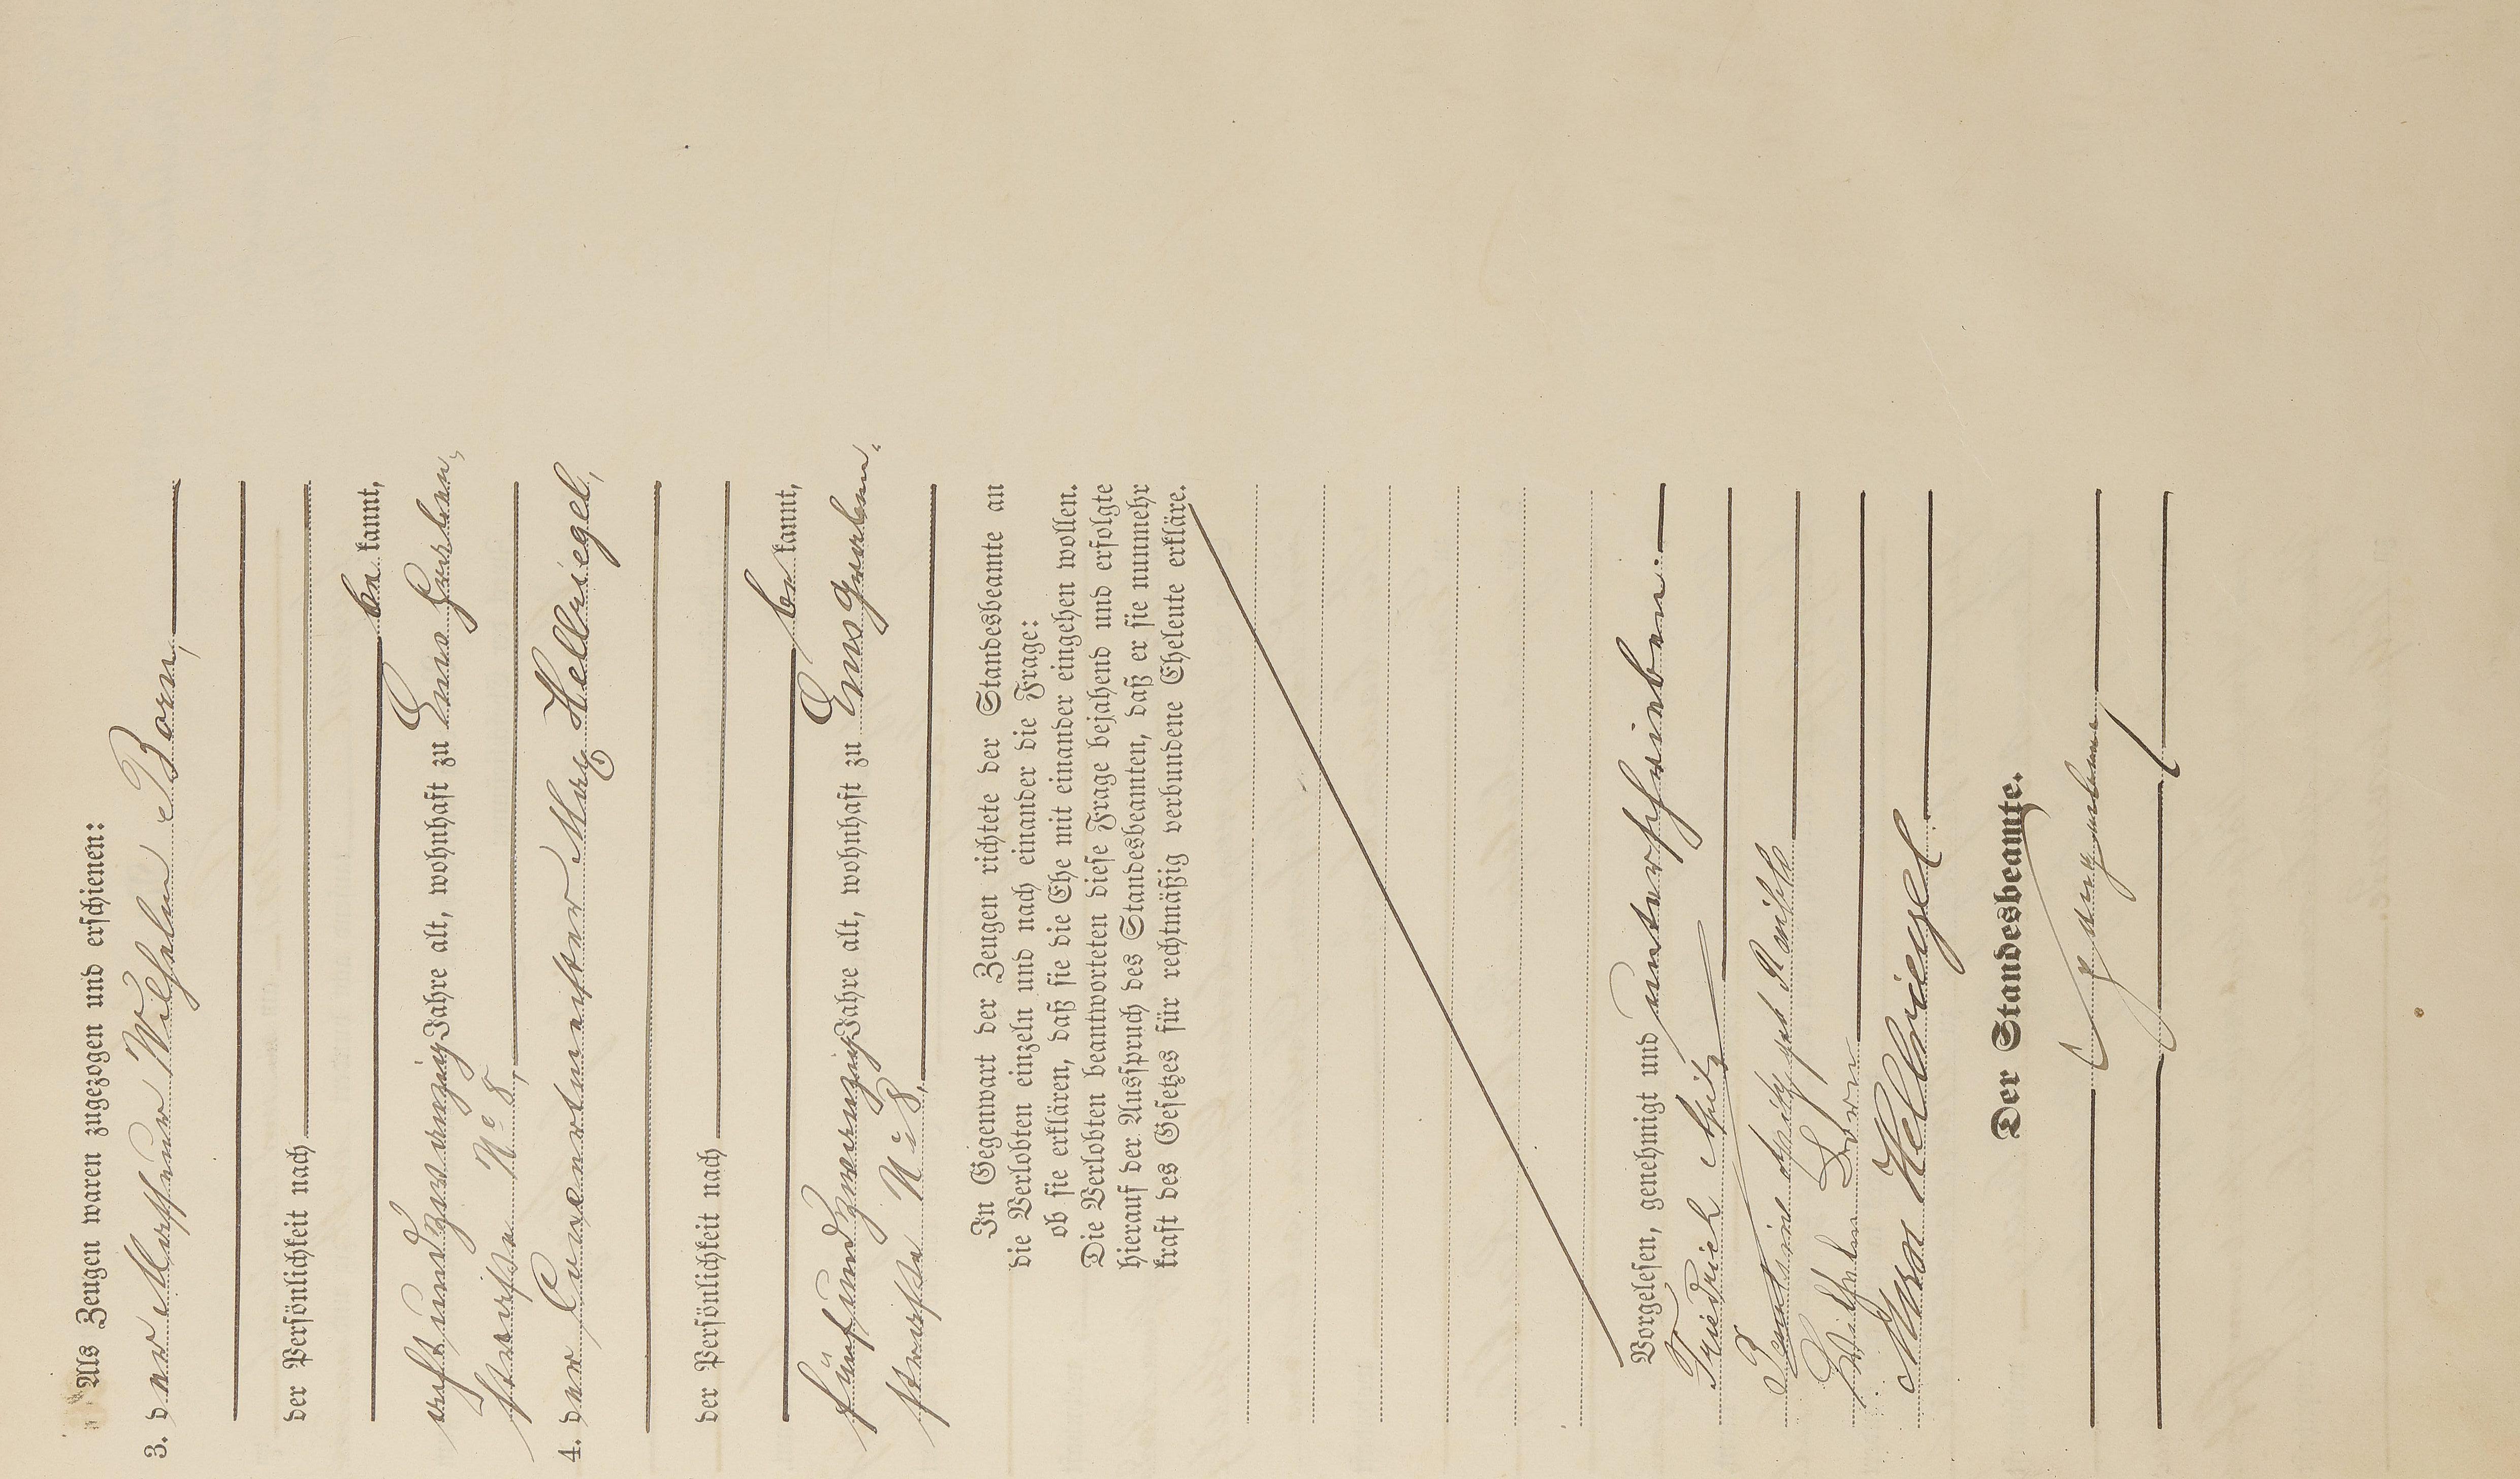 Als Zeugen waren zugezogen und erschienen:
3. der Maschineur Wilhelm Born,
der Persönlichkeit nach
be kannt,
achtundzwanzig Jahre alt, wohnhaft zu Ems
straße No 8,
4. der Curorchester Max Hellriegel,
der Persönlichkeit nach
be kannt,
fünfundzwanzig Jahre alt, wohnhaft zu Ems
straße No 8,
In Gegenwart der Zeugen richtete der Standesbeamte an
die Verlobten einzeln und nach einander die Frage:
ob sie erklären, daß sie die Ehe mit einander eingehen wollen.
Die Verlobten beantworteten diese Frage bejahend und erfolgte
hierauf der Ausspruch des Standesbeamten, daß er sie nunmehr
kraft des Gesetzes für rechtmäßig verbundene Eheleute erkläre.
Vorgelesen, genehmigt und unterschrieben.
Friedrich Opitz
Opitz geb
Wilhelm Born
Max Hellriegel
Der Standesbeamte.